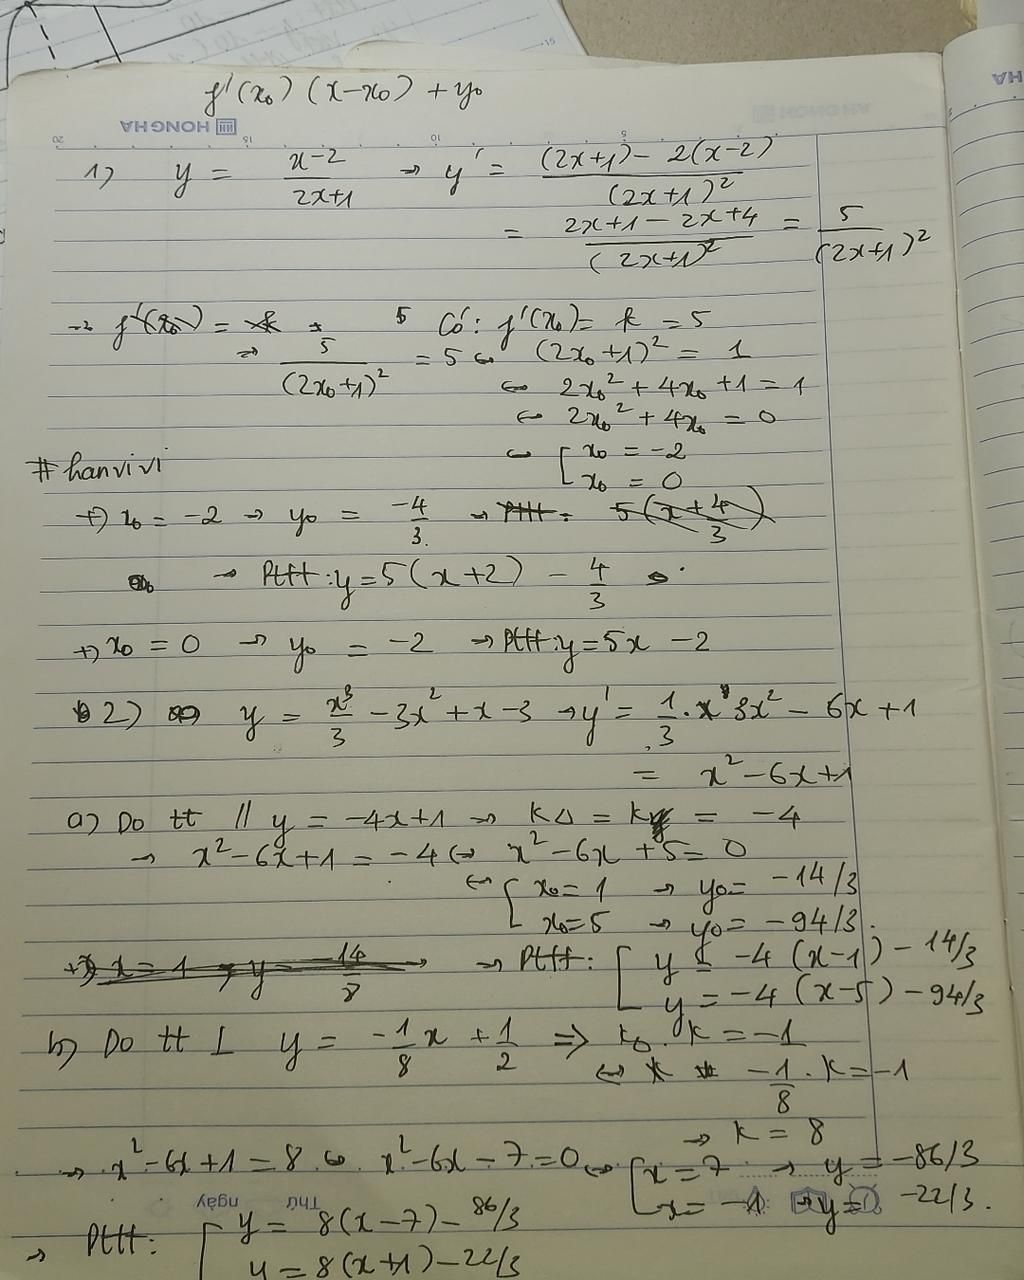 f'(x₀) (x-x₀) + y₀
HONG HA
20 15 10 5
1) y = (x-2)/(2x+1) → y' = ((2x+1) - 2(x-2))/(2x+1)²
= (2x+1-2x+4)/(2x+1)² = 5/(2x+1)²
Có: f'(x₀) = k = 5
⇒ 5/(2x₀+1)² = 5 ⇔ (2x₀+1)² = 1
⇔ 2x₀² + 4x₀ + 1 = 1
⇔ 2x₀² + 4x₀ = 0
⇔ [ x₀ = -2
x₀ = 0
#hanvivi
+) x₀ = -2 → y₀ = -4/3
→ Pttt: y = 5(x+2) - 4/3
+) x₀ = 0 → y₀ = -2 → Pttt: y = 5x - 2
2) y = x³/3 - 3x² + x - 3 → y' = 1/3 . 3x² - 6x + 1
= x² - 6x + 1
a) Do tt // y = -4x+1 → kΔ = k = -4
→ x² - 6x + 1 = -4 ⇔ x² - 6x + 5 = 0
⇔ [ x₀ = 1 → y₀ = -14/3
x₀ = 5 → y₀ = -94/3.
→ Pttt: [ y = -4 (x-1) - 14/3
y = -4 (x-5) - 94/3
b) Do tt ⊥ y = -1/8 x + 1/2 ⇒ kΔ . k = -1
⇔ -1/8 . k = -1
→ k = 8
→ x² - 6x + 1 = 8 ⇔ x² - 6x - 7 = 0 ⇔ [ x = 7 → y = -86/3
x = -1 → y = -22/3.
Thứ ngày
→ Pttt: [ y = 8(x-7) - 86/3
y = 8(x+1) - 22/3